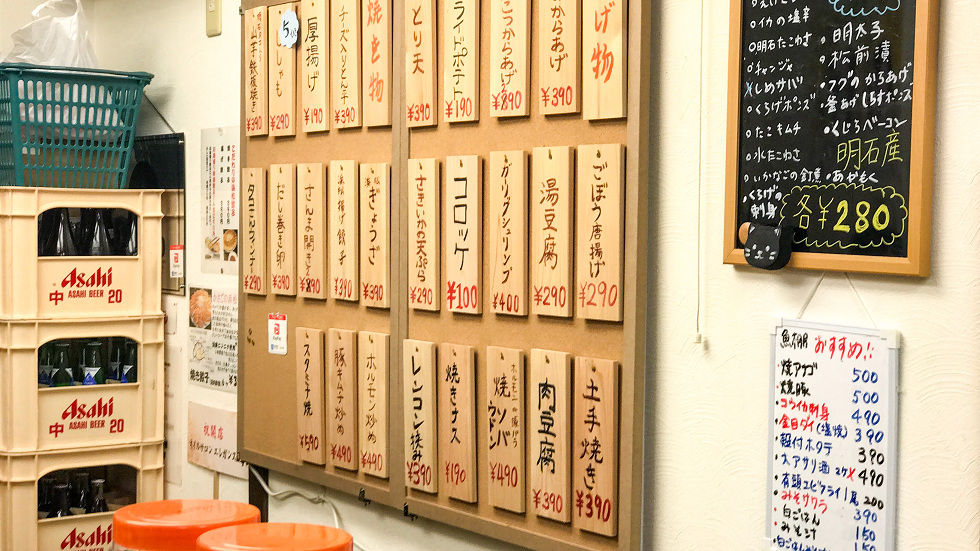 山芋鉄板焼き
¥390
ししゃも
¥290
5コ
厚揚げ
¥190
チーズ入りとん平
¥390
焼き物
とり天
¥390
フライドポテト
¥190
なこつからあげ
¥390
からあげ
¥390
揚げ物
¥290
だし巻き卵
¥290
さんま開き
浜松揚げ餃子
¥390
浜松ぎょうざ
¥390
さきいかの天ぷら
¥290
コロッケ
¥100
ガリックシュリンプ
¥400
湯豆腐
¥290
ごぼう唐揚げ
¥290
スタミナ焼
¥590
豚キムチ炒め
¥490
ホルモン炒め
¥490
レンコン挟み
¥390
焼きナス
¥190
焼ソバ
ウドン
¥490
肉豆腐
¥390
土手焼き
¥390
・イカの塩辛
・明石たこわさ
・チャンジャ
しめサバ
・くらげポンズ
・たこキムチ
・水たこわさ
・いかなごの釘煮
・くらげの刺身
・明太子
・松前漬
・フグのからあげ
・釜あげしらすポンズ
・くじらベーコン
明石産
各¥280
魚棚 おすすめ!!
・焼アナゴ 500
・焼豚 500
・コウイカ刺身 490
・金目ダイ(塩焼) 390
・殻付ホタテ 390
・大アサリ酒 2ケ 490
・有頭エビフライ1尾 200
・みそサワラ 390
・白ごはん 150
・みそ汁 150
Asahi
中 ASAHI BEER 20
Asahi
中 ASAHI BEER 20
Asahi
中 ASAHI BEER 20